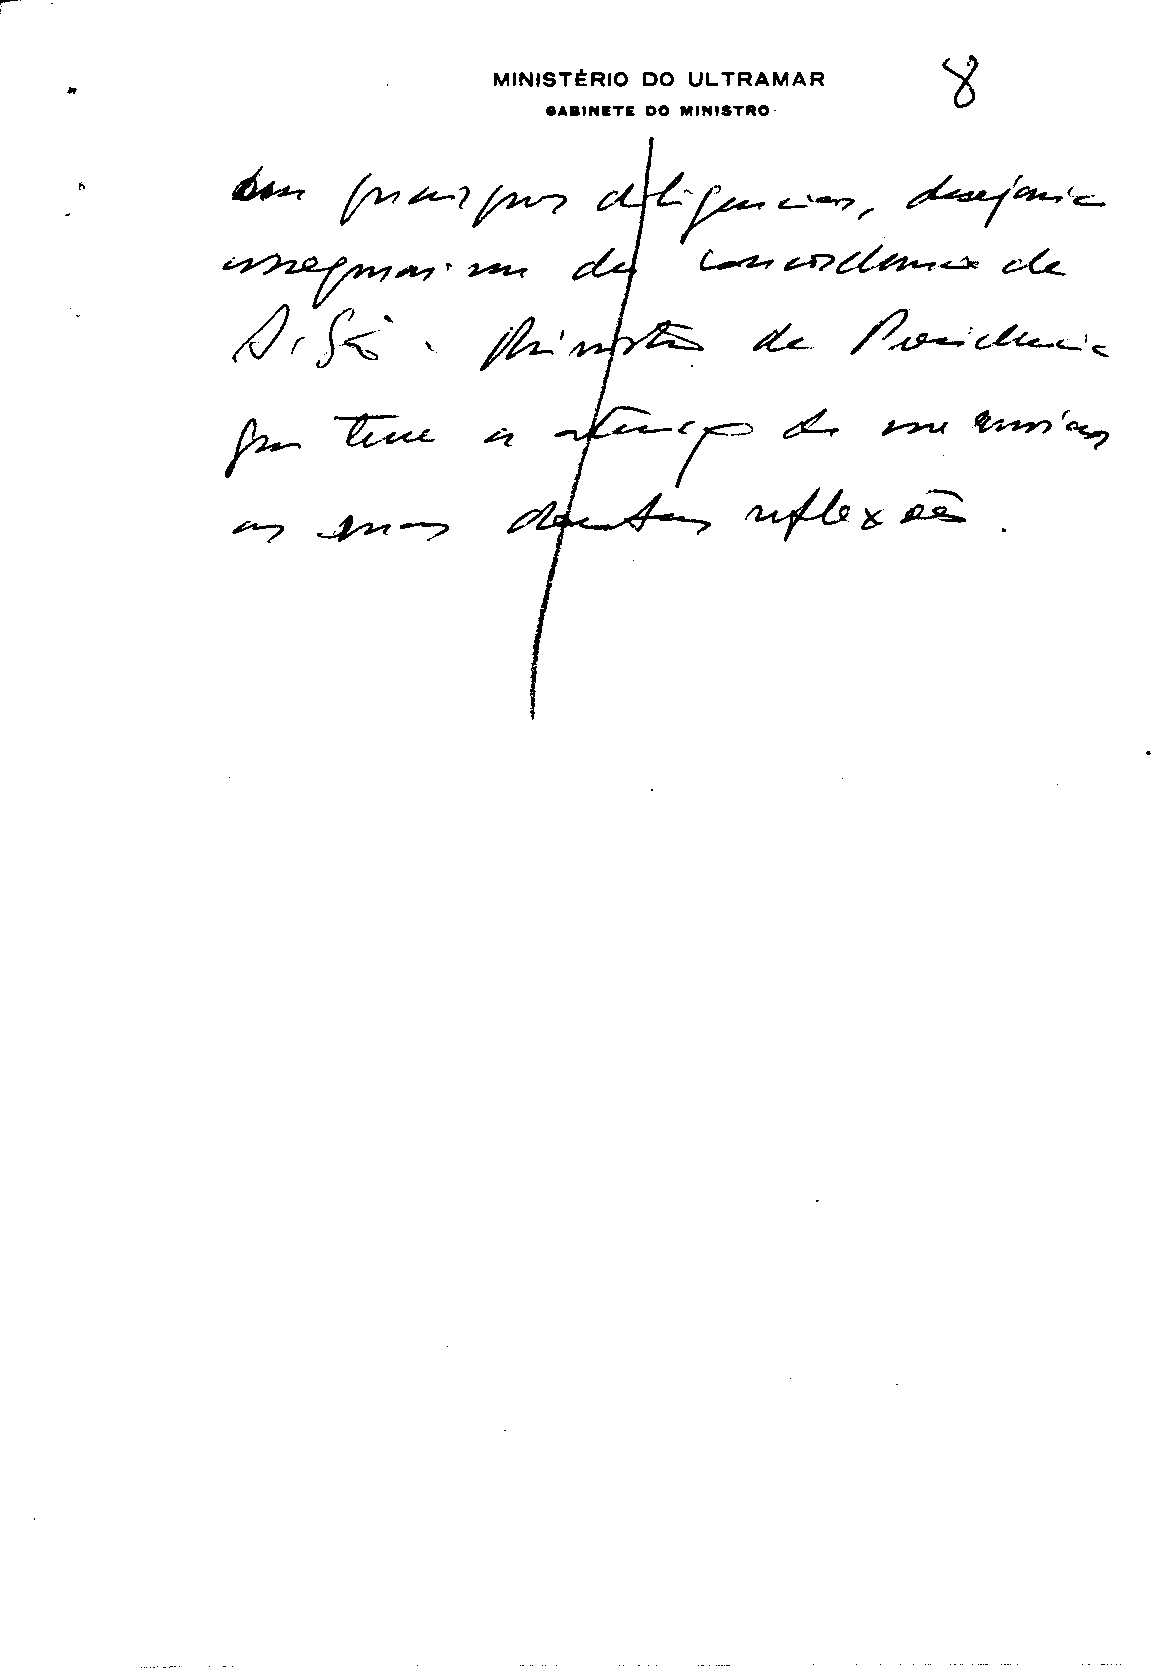 MINISTÉRIO DO ULTRAMAR
GABINETE DO MINISTRO
8
em quaisquer diligencias, desejaria
assegurar-me da concordancia de
S. Exª o Ministro da Presidencia
que teve a atenção de me enviar
as suas doutas reflexões.